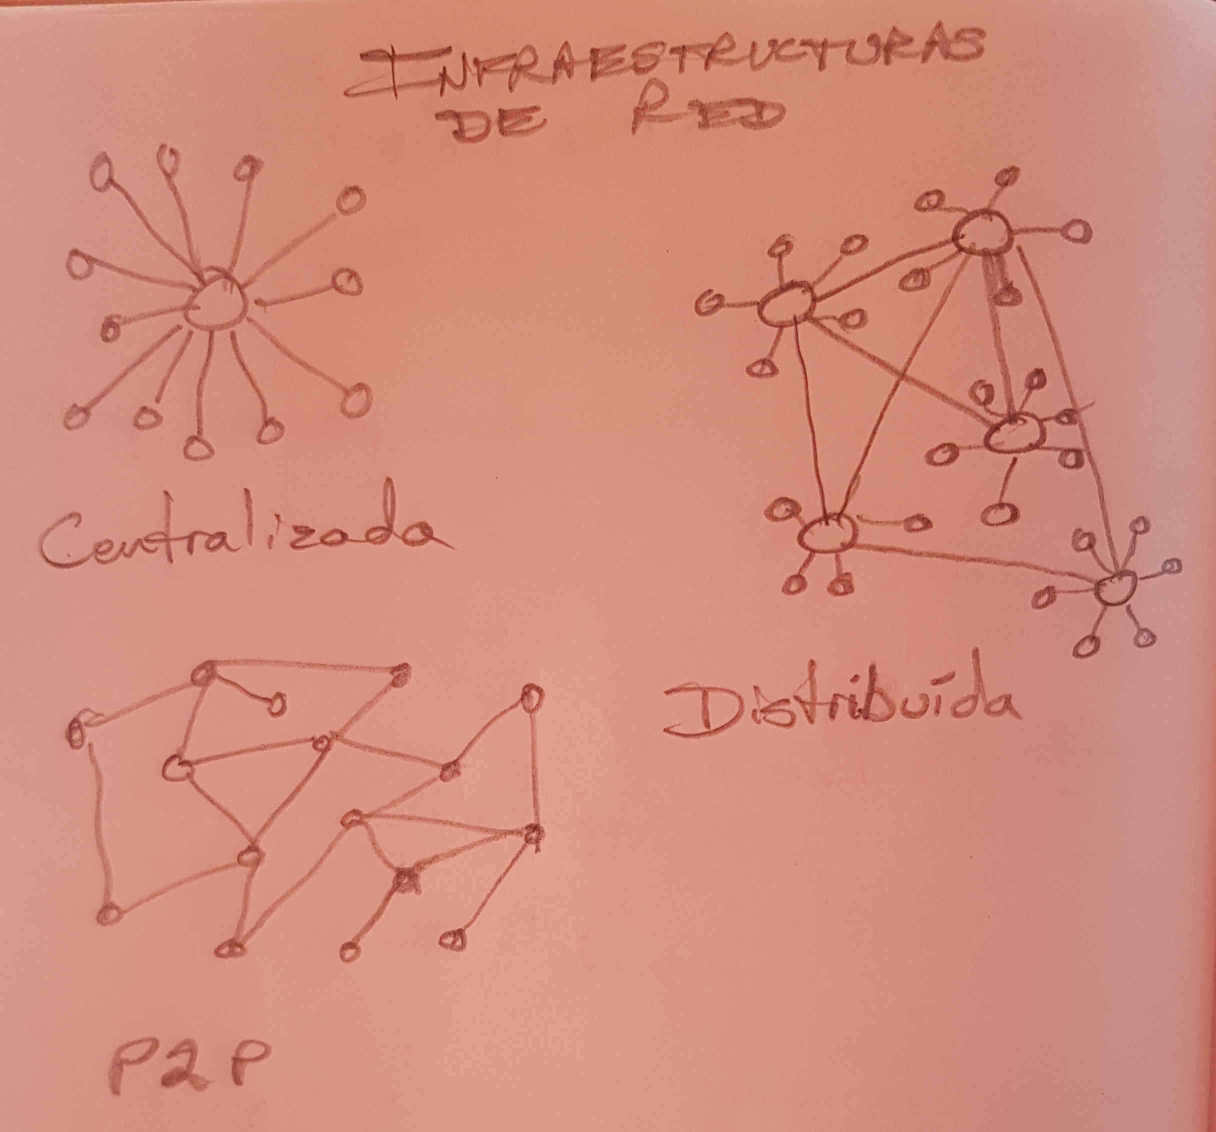 INFRAESTRUCTURAS
DE RED
Centralizada
Distribuída
P2P